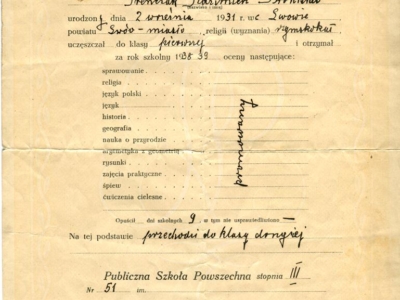 (nazwisko i imię)
urodzony dnia 2 września 1931 r. we Lwowie
powiatu Lwów-miasto religii (wyznania) rzymskokat
uczęszczał do klasy pierwszej i otrzymał
za rok szkolny 1938/39 oceny następujące:
sprawowanie
religia
język polski
język
historia
geografia
nauka o przyrodzie
arytmetyka z geometrią
rysunki
zajęcia praktyczne
śpiew
ćwiczenia cielesne
Opuścił dni szkolnych 9, w tym nie usprawiedliwiono —
Na tej podstawie przechodzi do klasy drugiej
Publiczna Szkoła Powszechna stopnia III
Nr 51 im.